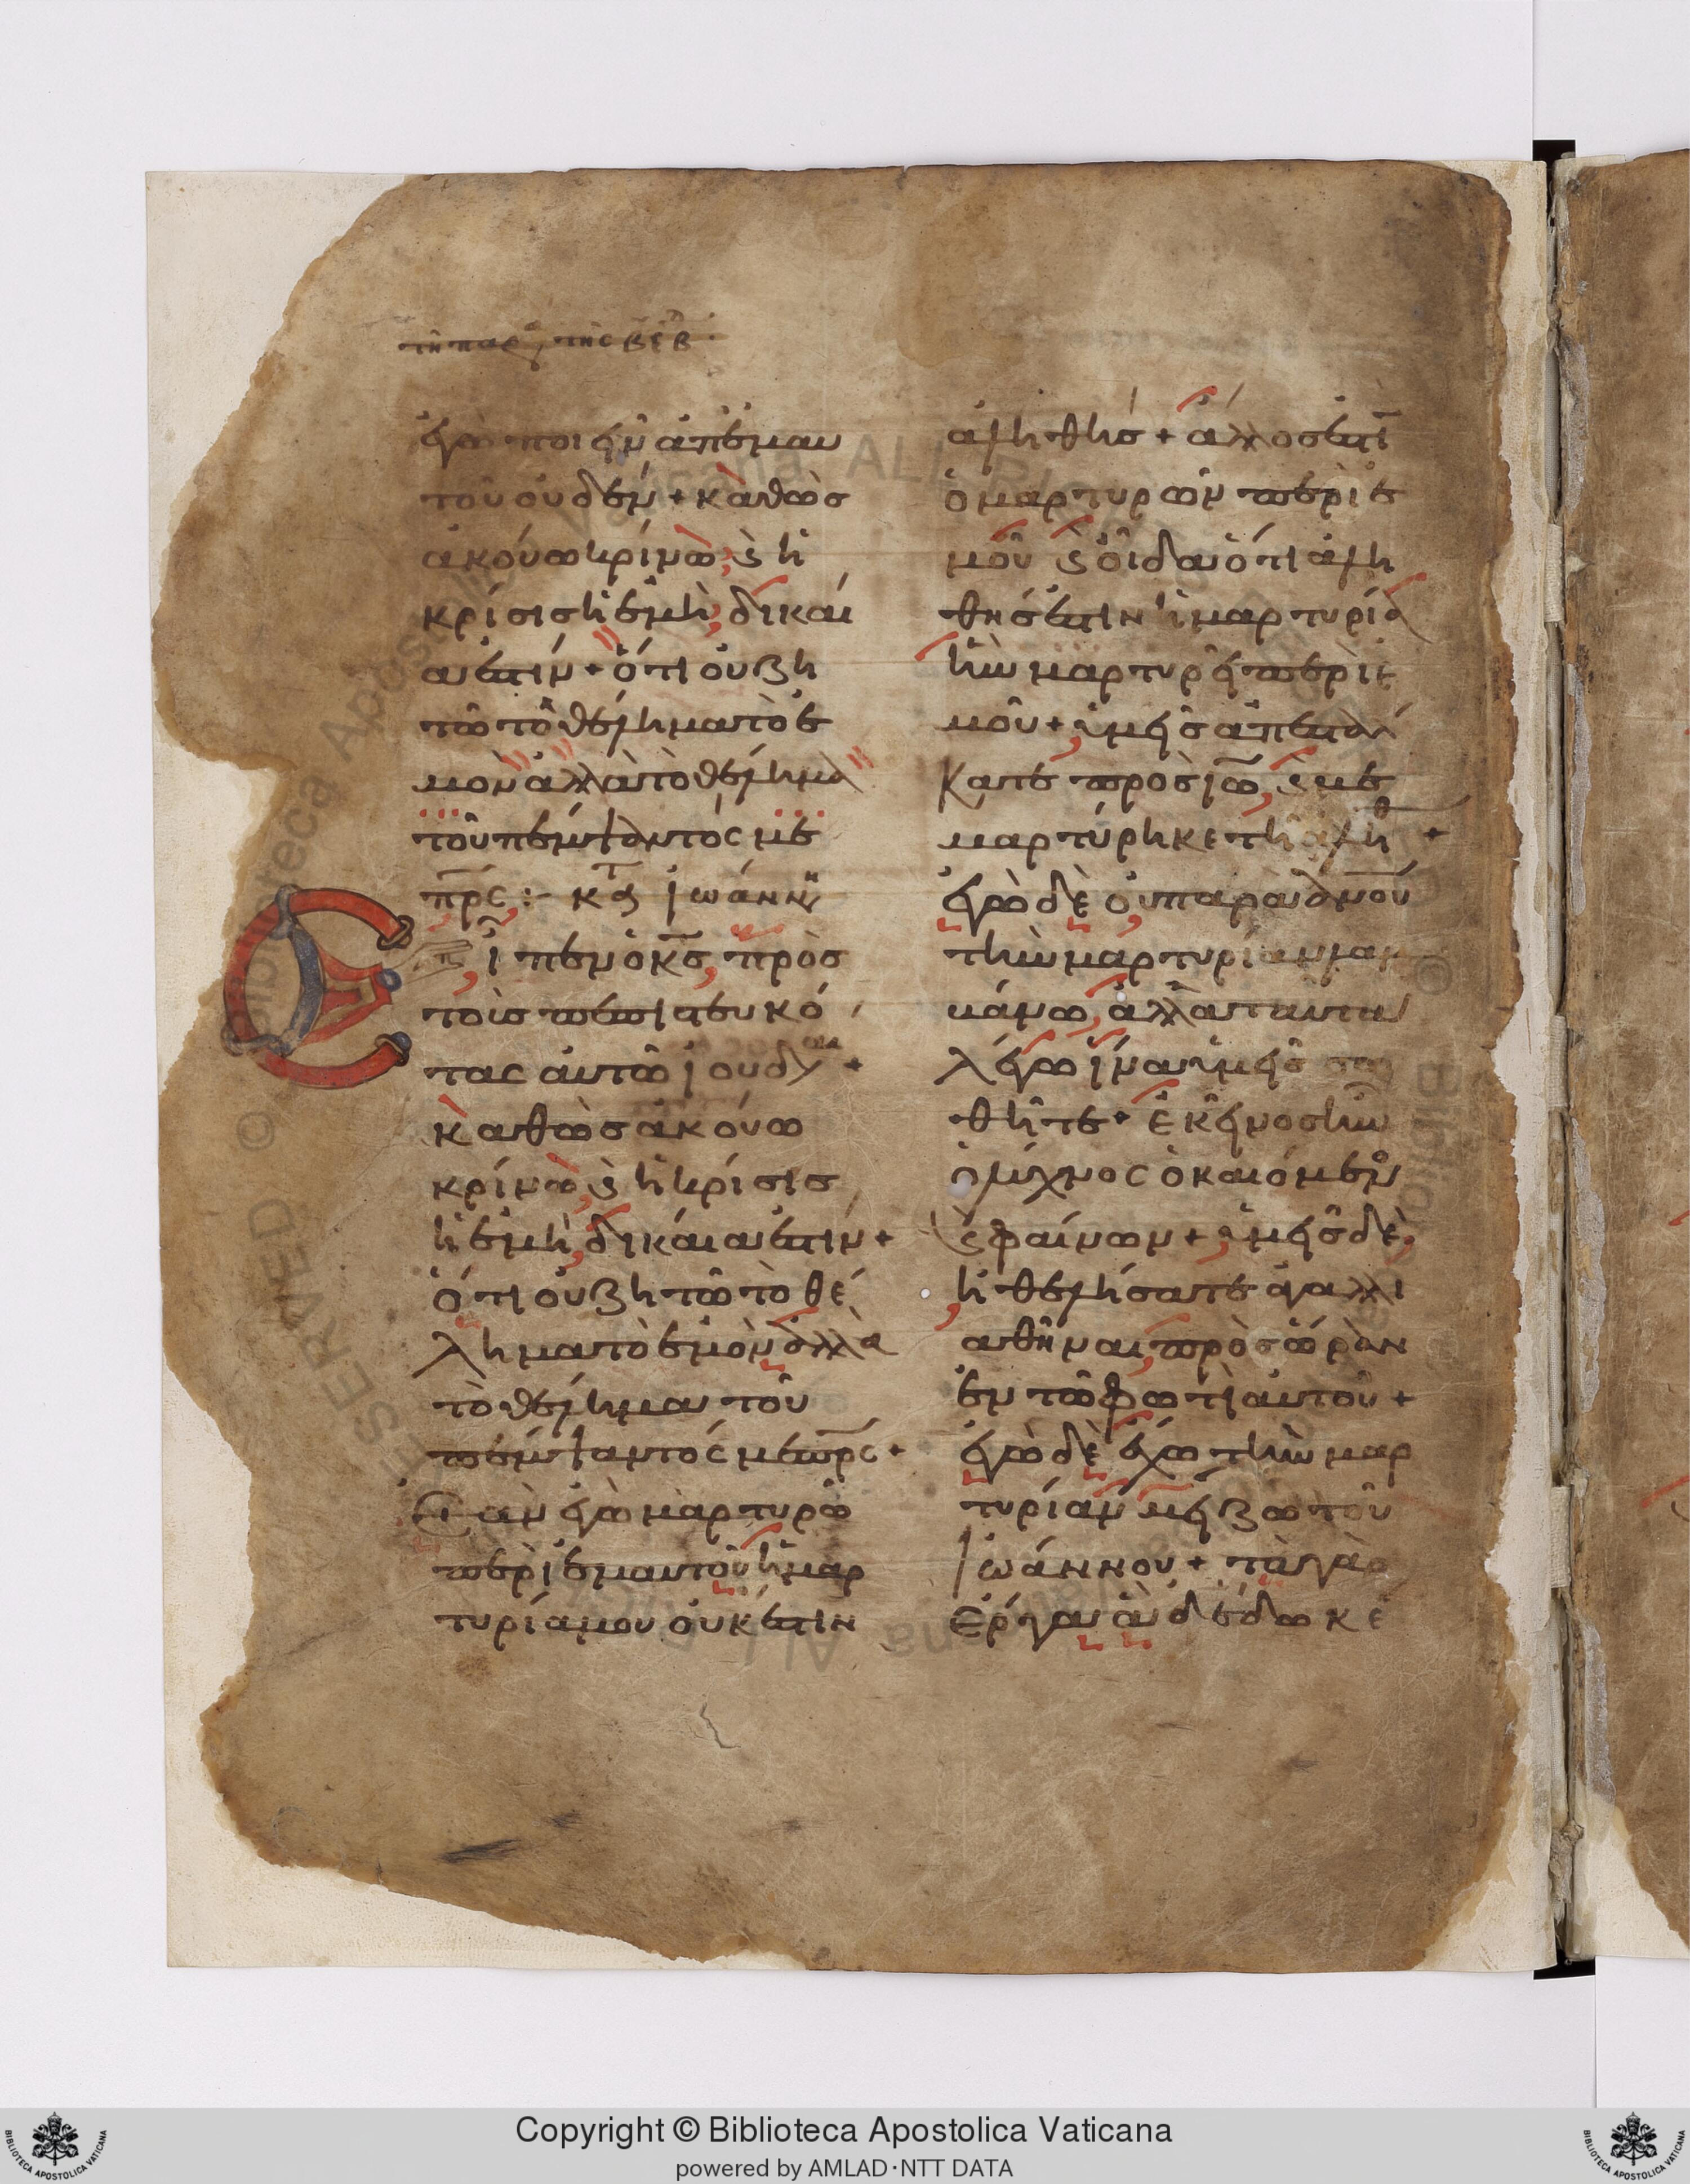 τῆ παρ τῆς β εβ
ἐγὼ ποιεῖν ἀπ' ἐμαυ
τοῦ οὐδέν + καθὼς
ἀκούω κρίνω, ϗ ἡ
κρίσις ἡ ἐμὴ, δικαί
α ἐστίν + ὅτι οὐ ζη
τῶ τὸ θέλημα τὸ ἐ
μὸν ἀλλὰ τὸ θέλημα
τοῦ πέμψαντός με
πρς :- κτ Ἰωάνν
Εἶπεν ὁ κς, πρὸς
τοὺς πεπιστευκό
τας αὐτῶ ἰουδαι +
καθὼς ἀκούω
κρίνω, ϗ ἡ κρίσις
ἡ ἐμὴ, δικαία ἐστίν +
ὅτι οὐ ζητῶ τὸ θέ
λημα τὸ ἐμὸν ἀλλὰ
τὸ θέλημα τοῦ
πέμψαντός με πρς +
Ἐὰν ἐγὼ μαρτυρῶ
περὶ ἐμαυτοῦ ἡ μαρ
τυρία μου οὐκ ἔστιν
ἀληθής + ἄλλος ἐστὶ
ὁ μαρτυρῶν περὶ ἐ
μοῦ ϗ οἶδα ὅτι ἀλη
θής ἐστιν ἡ μαρτυρία
ἣν μαρτυρεῖ περὶ ἐ
μοῦ + ὑμεῖς ἀπεσταλ
κατε πρὸς ἰω, ϗ με
μαρτύρηκε τῆ ἀλη θ +
ἐγὼ δὲ οὐ παρὰ ανου
τὴν μαρτυρίαν λαμ
βάνω, ἀλλὰ ταῦτα
λέγω ἵνα ὑμεῖς σω
θῆτε + ἐκεῖνος ἦν
ὁ λύχνος ὁ καιόμενο
ϗ φαίνων + ὑμεῖς δὲ,
ἠθελήσατε ἀγαλλι
αθῆναι, πρὸς ὥραν
ἐν τῶ φωτὶ αὐτοῦ +
ἐγὼ δὲ ἔχω τὴν μαρ
τυρίαν μείζω τοῦ
Ἰωάννου + τὰ γὰρ
ἔργα ἃ δέδωκέ